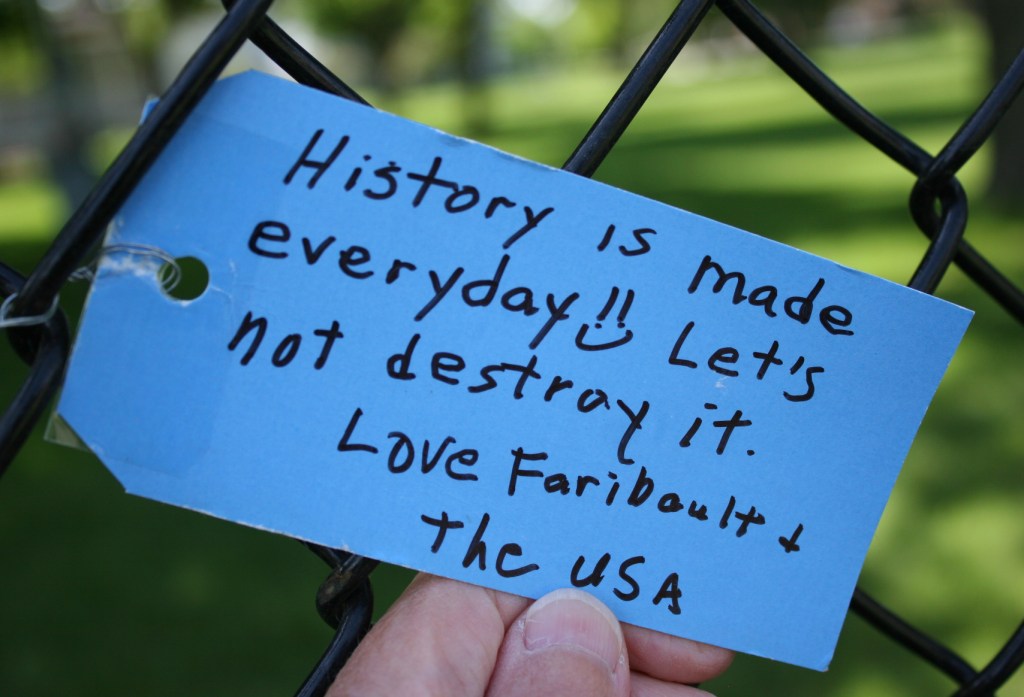 History is made
everyday!! Let's
not destray it.
Love Faribault +
the USA